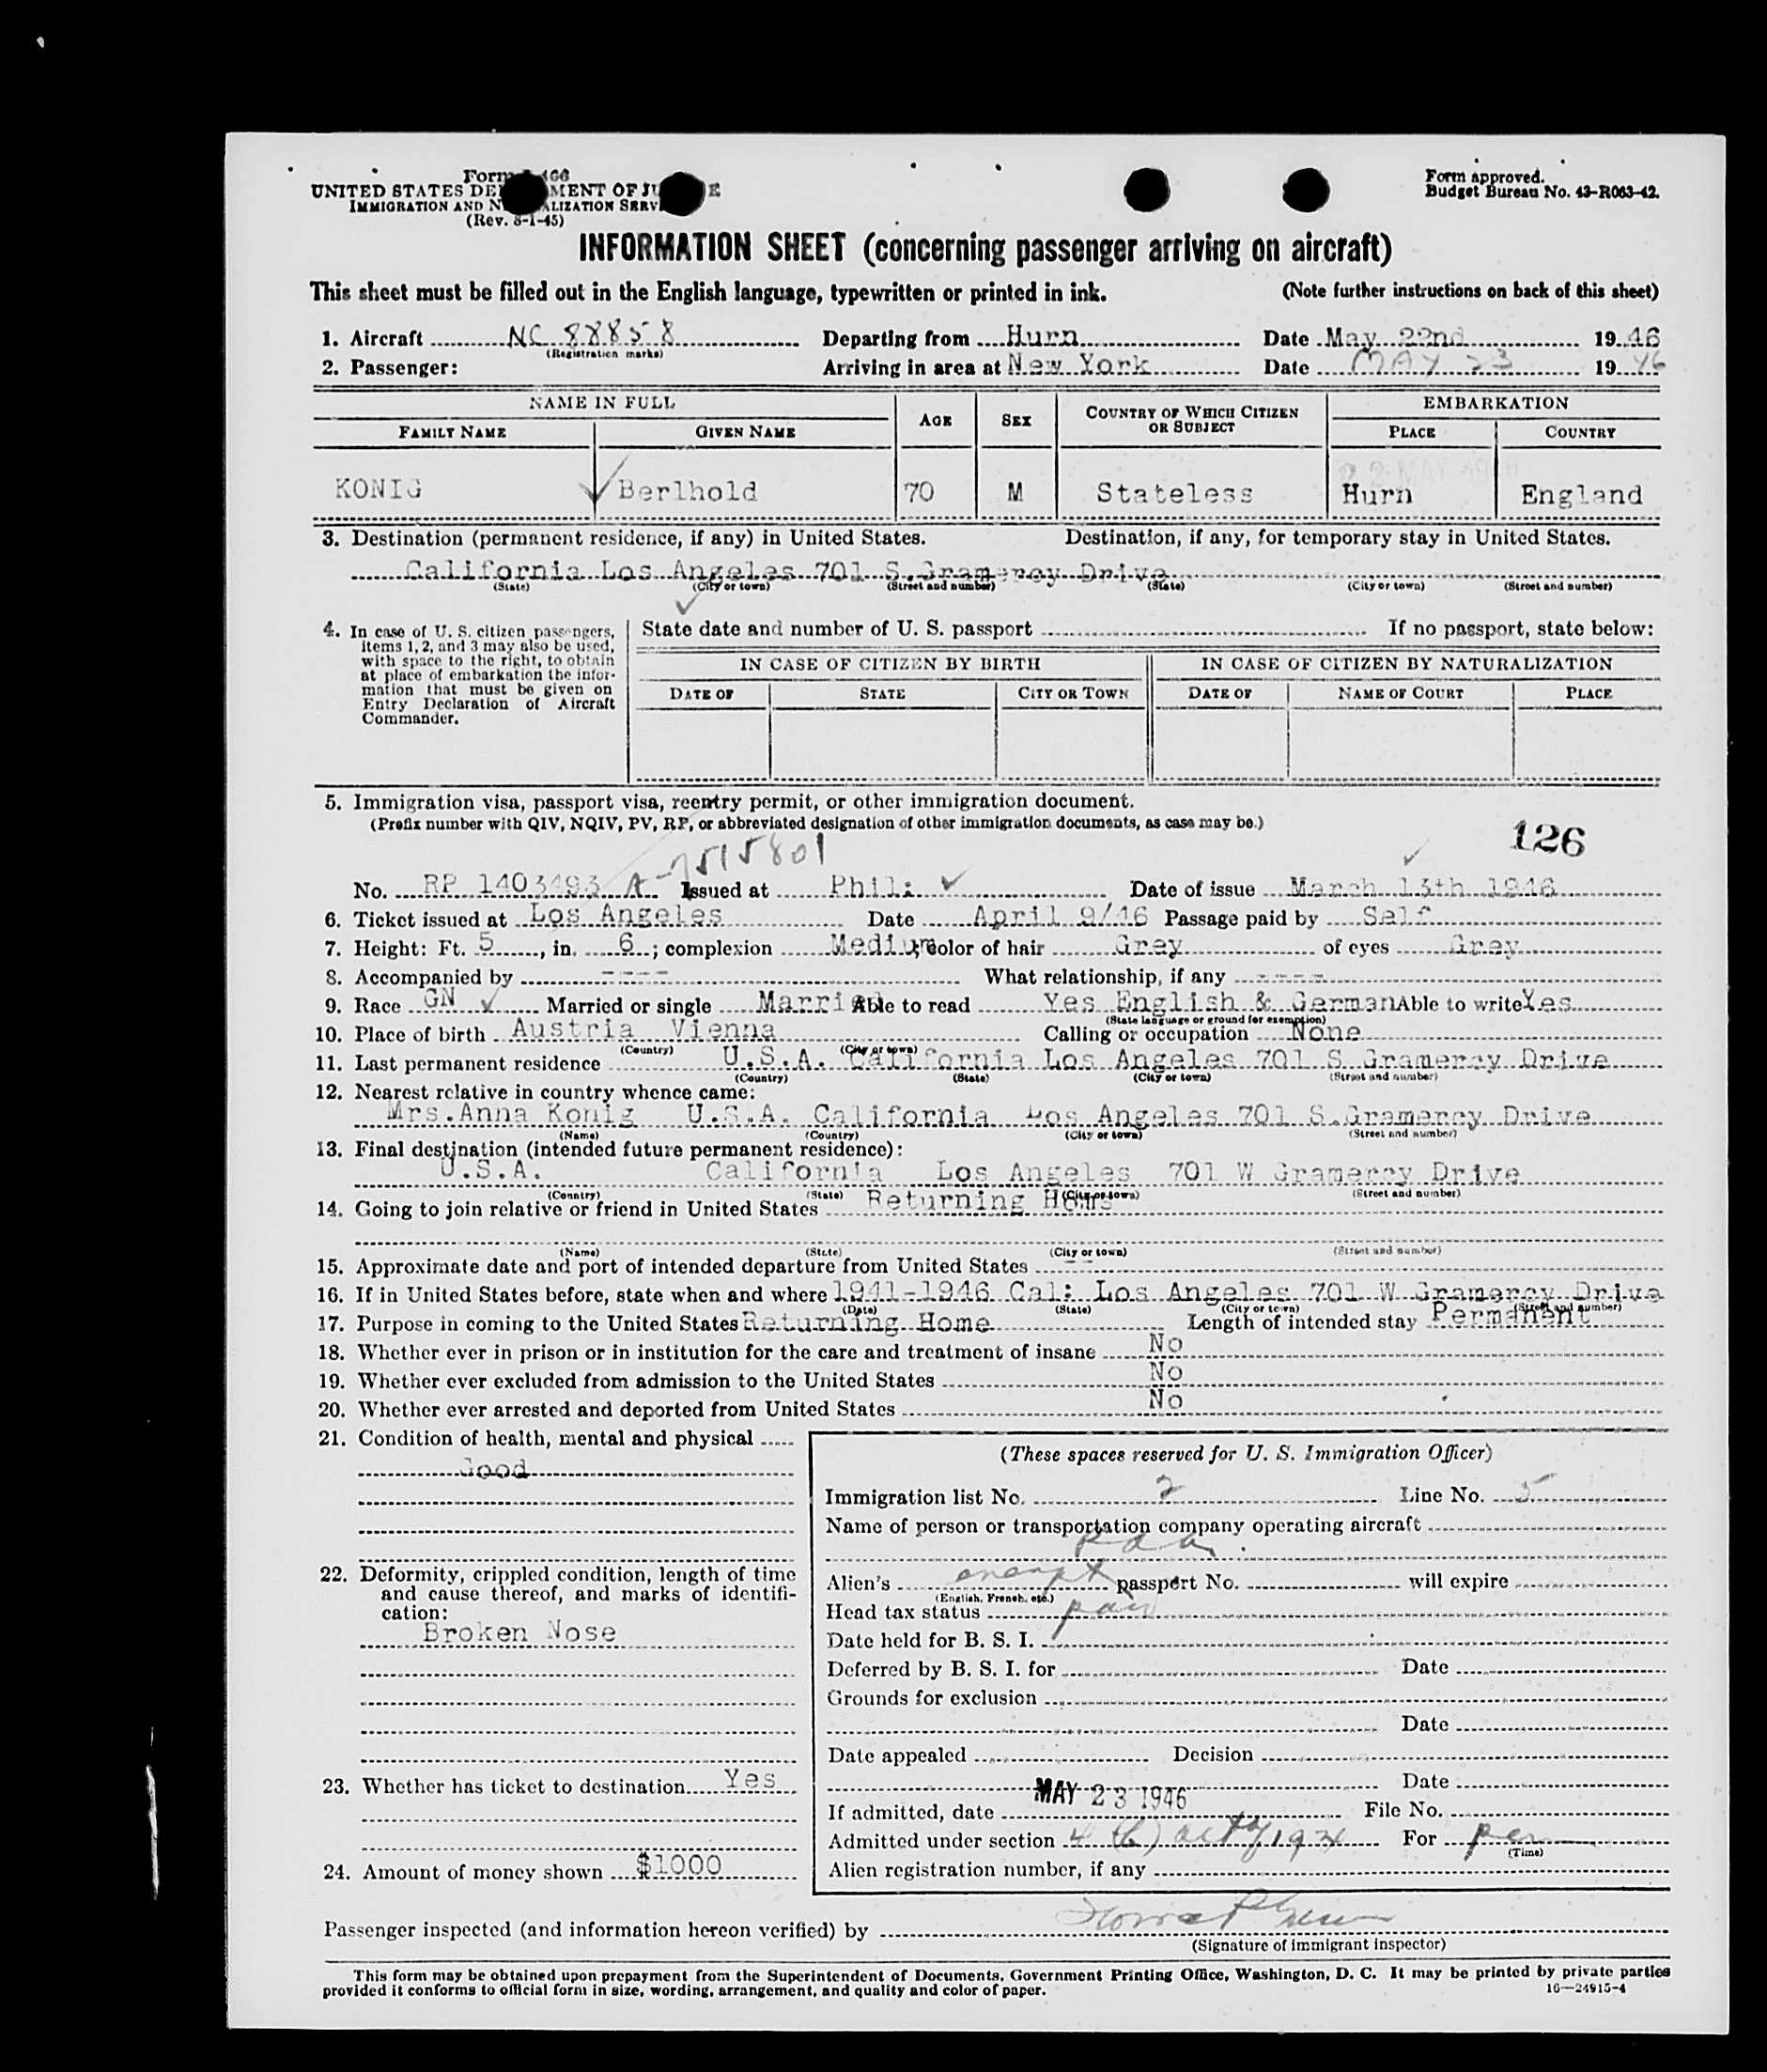 Form 466
UNITED STATES DE MENT OF JU E
IMMIGRATION AND N ALIZATION SERV
(Rev. 8-1-45)
Form approved.
Budget Bureau No. 43-R063-42.
INFORMATION SHEET (concerning passenger arriving on aircraft)
This sheet must be filled out in the English language, typewritten or printed in ink. (Note further instructions on back of this sheet)
1. Aircraft NC 88858 Departing from Hurn Date May 22nd 19 46
(Registration marks)
2. Passenger: Arriving in area at New York Date MAY 23 19 46
NAME IN FULL AGE SEX COUNTRY OF WHICH CITIZEN OR SUBJECT EMBARKATION
FAMILY NAME GIVEN NAME PLACE COUNTRY
KONIG Berlhold 70 M Stateless Hurn England
3. Destination (permanent residence, if any) in United States. Destination, if any, for temporary stay in United States.
California Los Angeles 701 S.Gramercy Drive
(State) (City or town) (Street and number) (State) (City or town) (Street and number)
4. In case of U. S. citizen passengers, items 1, 2, and 3 may also be used, with space to the right, to obtain at place of embarkation the information that must be given on Entry Declaration of Aircraft Commander.
State date and number of U. S. passport If no passport, state below:
IN CASE OF CITIZEN BY BIRTH IN CASE OF CITIZEN BY NATURALIZATION
DATE OF STATE CITY OR TOWN DATE OF NAME OF COURT PLACE
5. Immigration visa, passport visa, reentry permit, or other immigration document.
(Prefix number with QIV, NQIV, PV, RP, or abbreviated designation of other immigration documents, as case may be.)
126
A-7515801
No. RP 1403493 A Issued at Phil: Date of issue March 13th 1946
6. Ticket issued at Los Angeles Date April 9/46 Passage paid by Self
7. Height: Ft. 5, in. 6; complexion Medium; color of hair Grey of eyes Grey
8. Accompanied by ---- What relationship, if any ----
9. Race GN Married or single Married Able to read Yes English & German Able to write Yes
(State language or ground for exemption)
10. Place of birth Austria Vienna Calling or occupation None
(Country) (City or town)
11. Last permanent residence U.S.A. California Los Angeles 701 S Gramercy Drive
(Country) (State) (City or town) (Street and number)
12. Nearest relative in country whence came:
Mrs.Anna Konig U.S.A. California Los Angeles 701 S.Gramercy Drive
(Name) (Country) (City or town) (Street and number)
13. Final destination (intended future permanent residence):
U.S.A. California Los Angeles 701 W Gramercy Drive
(Country) (State) (City or town) (Street and number)
14. Going to join relative or friend in United States Returning Home
(Name) (State) (City or town) (Street and number)
15. Approximate date and port of intended departure from United States --
16. If in United States before, state when and where 1941-1946 Cal: Los Angeles 701 W Gramercy Drive
(Date) (State) (City or town) (Street and number)
17. Purpose in coming to the United States Returning Home Length of intended stay Permanent
18. Whether ever in prison or in institution for the care and treatment of insane No
19. Whether ever excluded from admission to the United States No
20. Whether ever arrested and deported from United States No
21. Condition of health, mental and physical
Good
22. Deformity, crippled condition, length of time and cause thereof, and marks of identification:
Broken Nose
23. Whether has ticket to destination Yes
24. Amount of money shown $1000
(These spaces reserved for U. S. Immigration Officer)
Immigration list No. 2 Line No. 5
Name of person or transportation company operating aircraft
P a a
Alien's exempt passport No. will expire
(English, French, etc.)
Head tax status paid
Date held for B. S. I.
Deferred by B. S. I. for Date
Grounds for exclusion
Date
Date appealed Decision
Date
If admitted, date MAY 23 1946 File No.
Admitted under section 4 (b) act of 1924 For per
(Time)
Alien registration number, if any
Passenger inspected (and information hereon verified) by
(Signature of immigrant inspector)
This form may be obtained upon prepayment from the Superintendent of Documents, Government Printing Office, Washington, D. C. It may be printed by private parties
provided it conforms to official form in size, wording, arrangement, and quality and color of paper.
16—24915-4